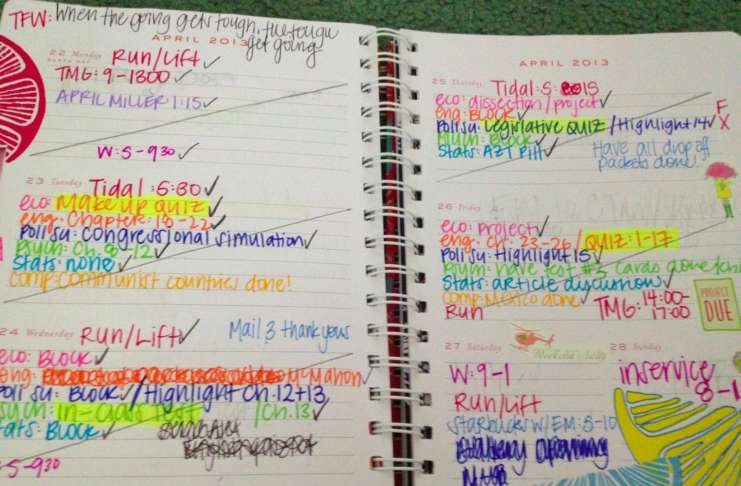 TFW: When the going gets tough, the tough
get going
APRIL 2013
22 Monday Run/Lift ✓
TMG: 9-1300 ✓
APRIL MILLER 1:15 ✓
W: 5-930 ✓
23 Tuesday Tidal: 5:30 ✓
eco: Make up quiz ✓
eng: Chapter 18-22 ✓
poli su: congressional simulation ✓
psych: Ch. 8-12 ✓
stats: none ✓
comp: communist countries done!
24 Wednesday Run/Lift ✓ Mail 3 thank yous
eco: BLOCK ✓
eng: McMahon ✓
poli su: BLOCK ✓ / Highlight Ch. 12+13
psych: in-class test ✓ / Ch. 13 ✓
stats: BLOCK ✓
5-930
APRIL 2013
25 Thursday Tidal 5:15
eco: dissection/project ✓
eng: BLOCK ✓
poli su: Legislative QUIZ ✓ / Highlight 14 ✓
F
X
psych: BLOCK ✓
Stats: AZT Pill ✓ Have all drop off
packets done!
26 Friday
eco: project ✓
eng: Ch. 23-26 / QUIZ: 1-17
poli su: Highlight 15 ✓
psych: have test #3 cards done
Stats: article discussion ✓
comp: Mexico done ✓
Run TMG: 14:00-
17:00
PROJECT
DUE
27 Saturday 28 Sunday
W: 9-1 inservice
8-1
Run/Lift
Starbucks w/ EM: 8-10